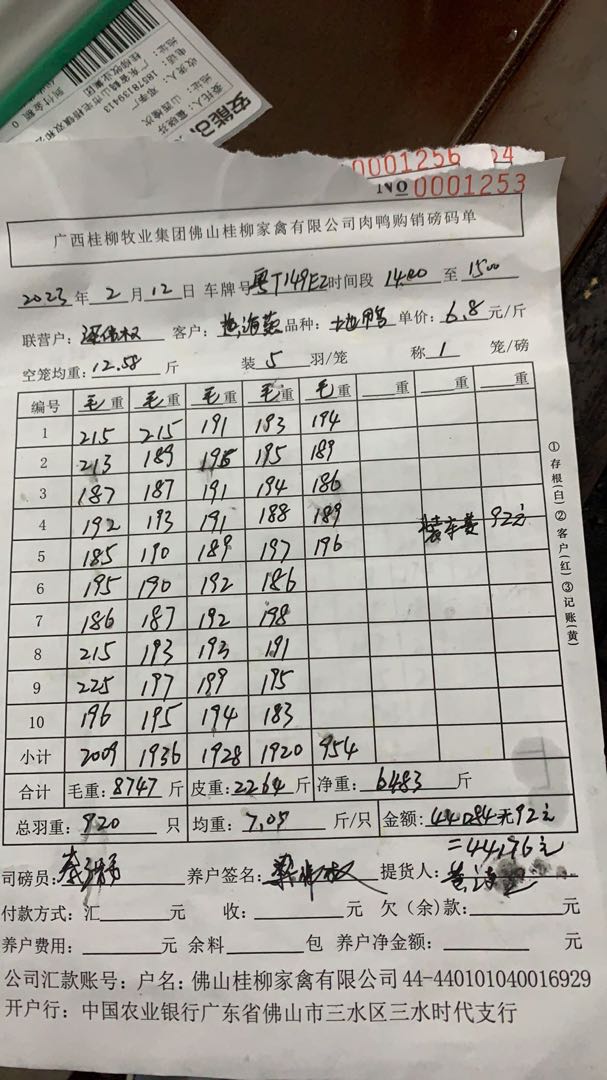 安能
委托人:
山西榆次
地址:
收货人: 邓
电话: 18578139413
地址:
到付金额 0
0001256 24
NO 0001253
广西桂柳牧业集团佛山桂柳家禽有限公司肉鸭购销磅码单
2023 年 2 月 12 日 车牌号 粤T149E2 时间段 14.00 至 15.00
联营户: 客户: 品种: 土地鸭 单价: 6.8 元/斤
空笼均重: 12.58 斤 装 5 羽/笼 称 1 笼/磅
编号 毛重 毛重 毛重 毛重 毛重 重 重 重
1 215 215 191 193 194
2 213 189 195 195 189
3 187 187 191 194 186
4 192 193 191 188 189 装车费 92元
5 185 190 189 197 196
6 195 190 192 186
7 186 187 192 198
8 215 193 193 191
9 225 197 199 195
10 196 195 194 183
小计 2009 1936 1928 1920 954
合计 毛重: 8747 斤 皮重: 2264 斤 净重: 6483 斤
总羽重: 920 只 均重: 7.07 斤/只 金额: 44084元 92元
=44176元
司磅员: 养户签名: 提货人:
付款方式: 汇 元 收: 元 欠(余)款: 元
养户费用: 元 余料 包 养户净金额: 元
公司汇款账号: 户名: 佛山桂柳家禽有限公司 44-440101040016929
开户行: 中国农业银行广东省佛山市三水区三水时代支行
①存根(白)②客户(红)③记账(黄)